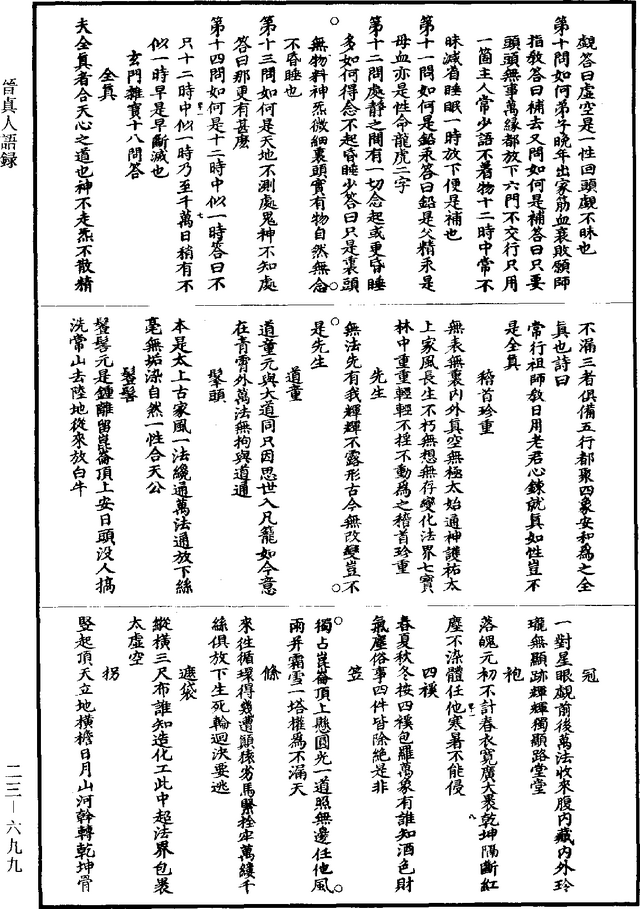 覷答曰虛空是一性回頭覷不昧也
第十問如何弟子晚年出家筋血衰敗願師
指教答曰補去又問如何是補答曰只要
頭頭無事萬緣都放下六門不交行只用
一箇主人常少語不着物十二時中常不
昧減省睡眠一時放下便是補也
第十一問如何是鉛汞答曰鉛是父精汞是
母血亦是性命龍虎二字
第十二問處静之間有一切念起或更昏睡
多如何得念不起昏睡少答曰只是裏頭
無物料神炁微細裏頭實有物自然無念
不昏睡也
第十三問如何是天地不測處鬼神不知處
答曰那更有甚麽
第十四問如何是十二時中似一時答曰不
只十二時中似一時乃至千萬日稍有不
似一時早是早斷滅也
玄門雜寶十八問答
全真
夫全真者合天心之道也神不走炁不散精
不漏三者俱備五行都聚四象安和爲之全
真也詩曰
常行祖師教日用老君心鍊就真如性豈不
是全真
稽首珍重
無表無裏内外真空無極太始通神護祐太
上家風長生不朽無想無存變化法界七寶
林中重重輕輕不揺不動爲之稽首珍重
先生
無法先有我輝輝不露形古今無改變豈不
是先生
道童
道童元與大道同只因思世入凡籠如今意
在青霄外萬法無拘與道通
髼頭
本是太上古家風一法纔通萬法通放下絲
毫無垢染自然一性合天公
鬅髻
鬅髻元是鍾離留崑崙頂上安日頭没人搞
洗常山去陸地從來放白牛
冠
一對星眼覷前後萬法收來腹内藏内外玲
瓏無顯跡輝輝獨顯路堂堂
袍
落魄元初不計春衣寛廣大褁乾坤隔斷紅
塵不染體任他寒暑不能侵
四𧞅
春夏秋冬按四𧞅包羅萬象有誰知酒色財
氣塵俗事四件皆除絶是非
笠
獨占崑崙頂上懸圓光一道照無邊任他風
雨并霜雪一塔權爲不漏天
絛
來往循環得幾遭顛猿劣馬緊拴牢萬縷千
絲俱放下生死輪迴決要逃
遮袋
縱橫三尺布誰知造化工此中超法界包褁
太虛空
拐
竪起頂天立地橫擔日月山河斡轉乾坤骨
晉真人語録
二三—六九九